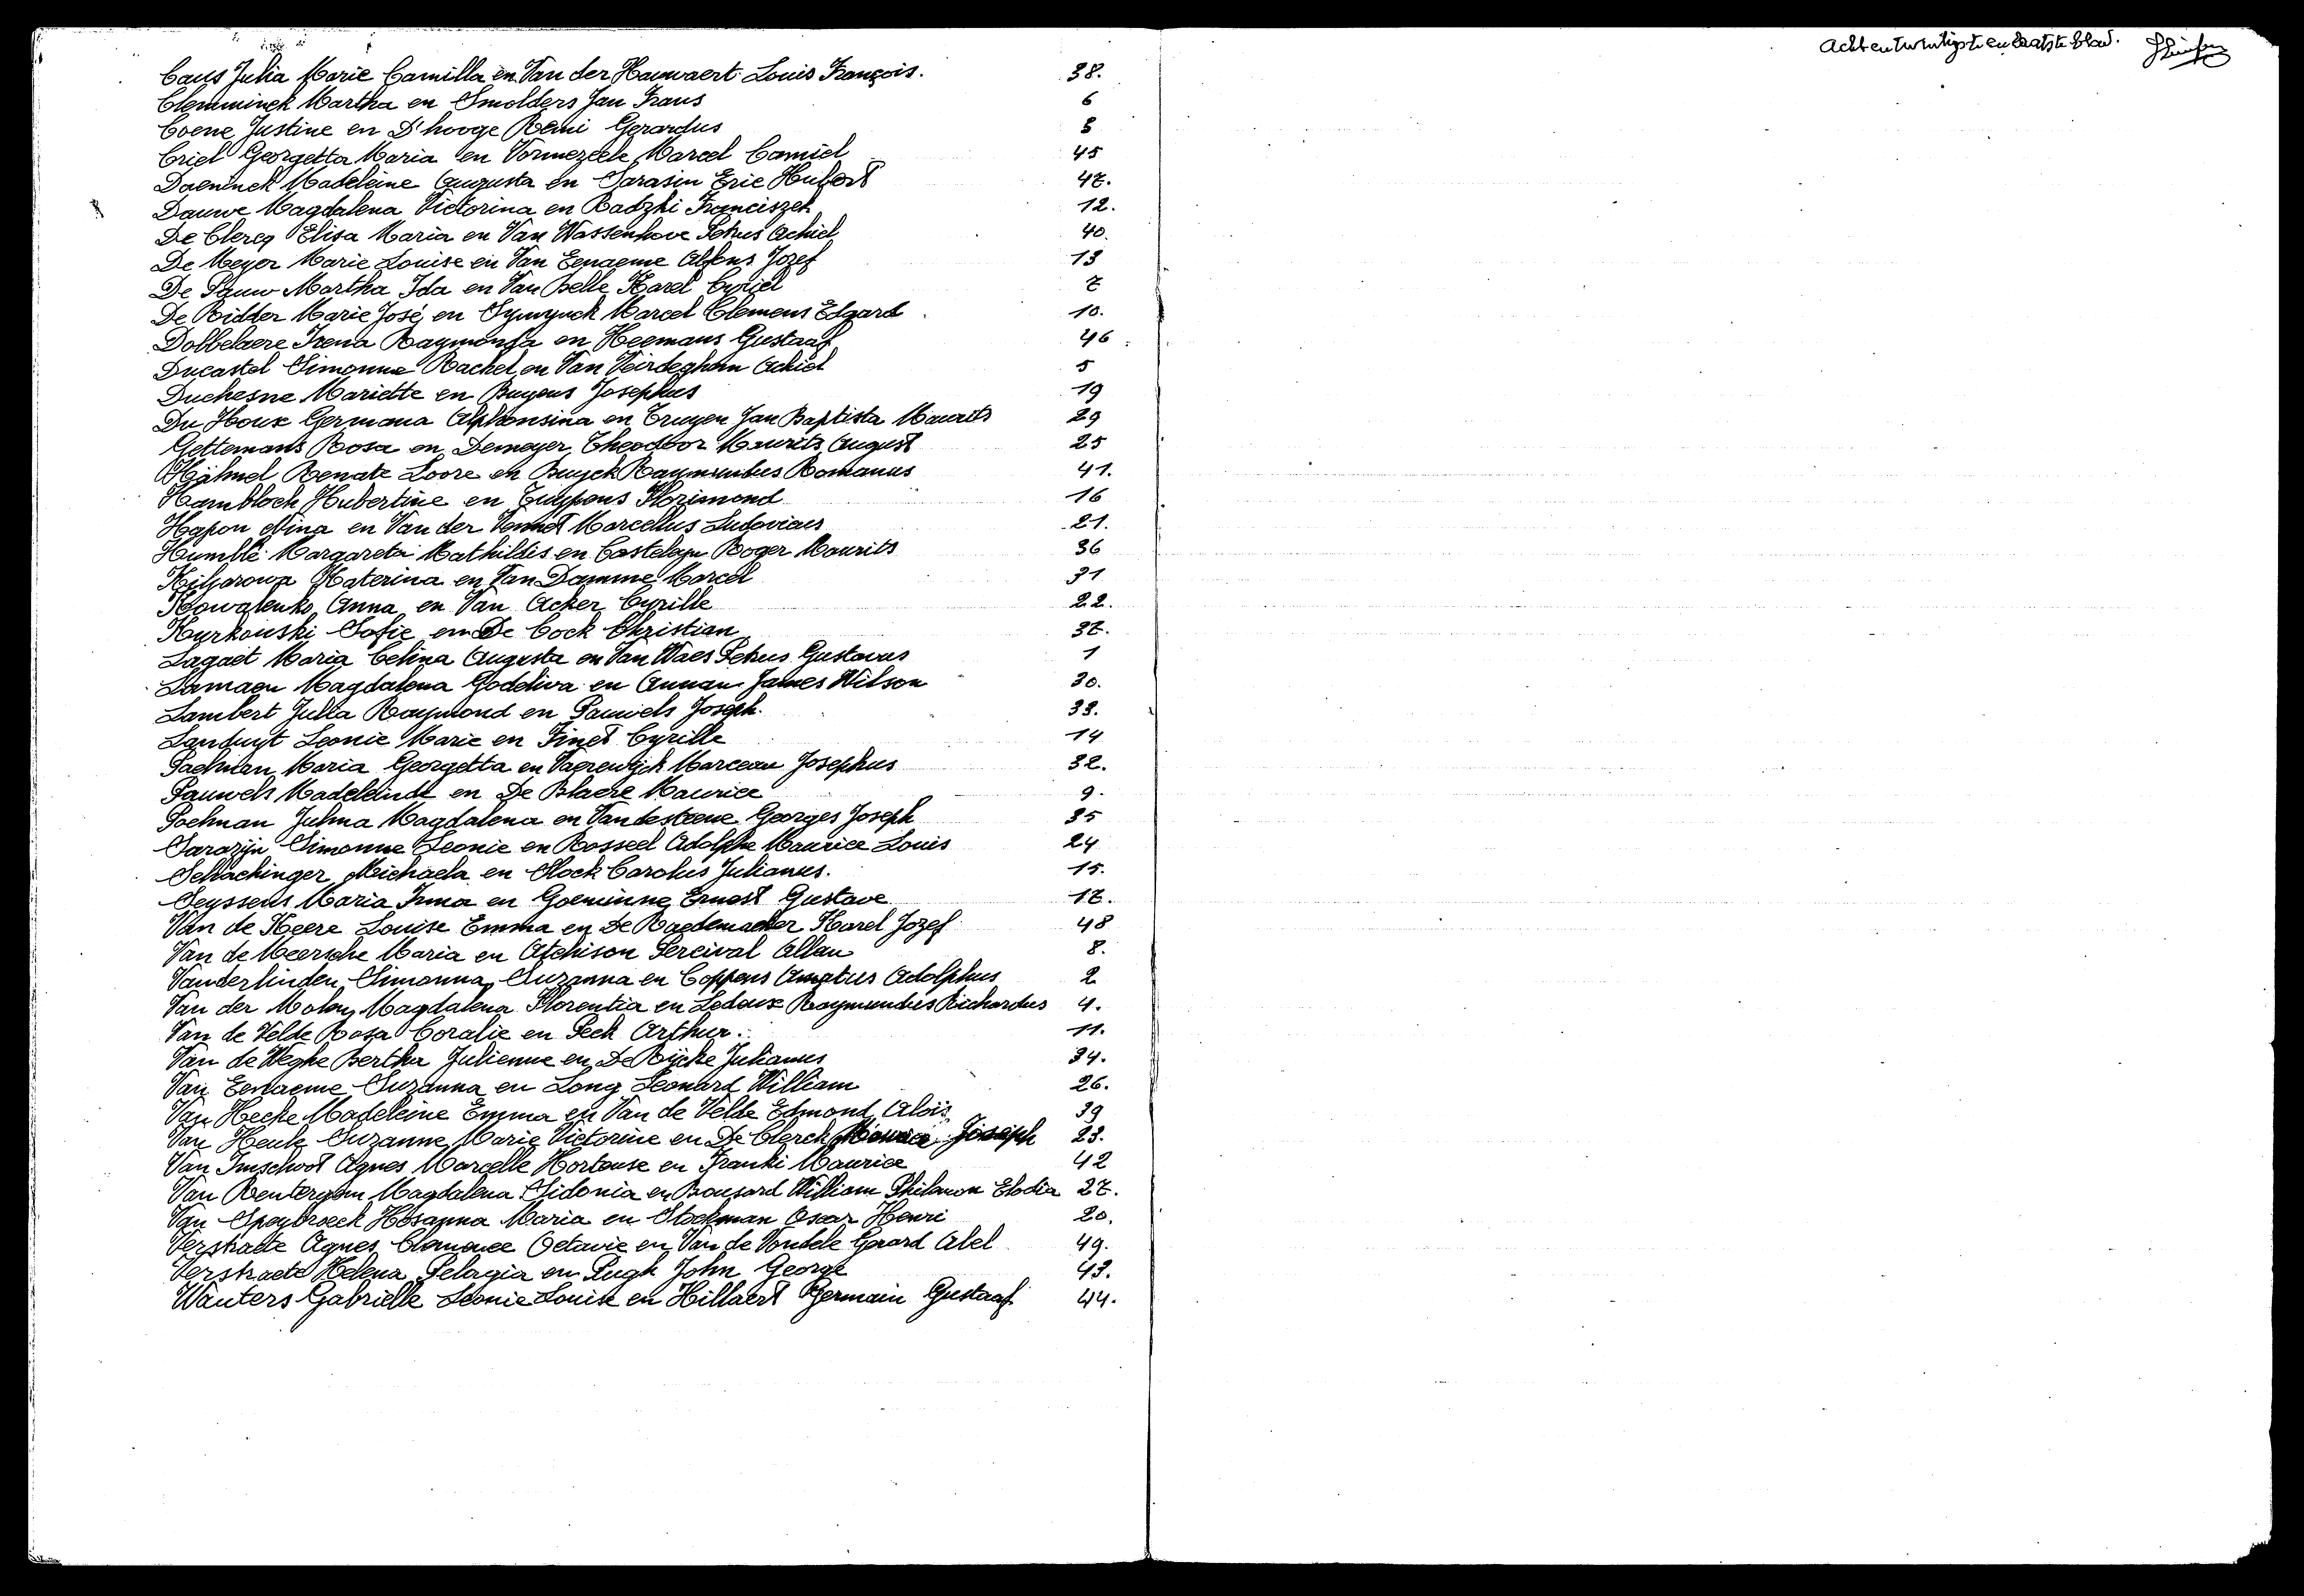 Caus Julia Marie Camilla en Van der Hauwaert Louis François. 38.
Clemminck Martha en Smolders Jan Frans 6
Coene Justine en D'hooge Remi Gerardus 3
Criel Georgetta Maria en Vormezeele Marcel Camiel 45
Daeninck Madeleine Augusta en Sarasin Eric Hubert 47.
Dauwe Magdalena Victorina en Radzki Franciszek 12.
De Clercq Elisa Maria en Van Wassenhove Petrus Achiel 40.
De Meyer Marie Louise en Van Eenaeme Alfons Jozef 13
De Pauw Martha Ida en Van Belle Karel Cyriel 7
De Ridder Marie José en Marcel Clemens Edgard 10.
Dobbelaere Irena Raymonda en Heemans Gustaaf 46.
Ducastel Simonne Rachel en Van Veirdeghem Achiel 5
Duchesne Mariette en Buyens Josephus 19
Du Houx Germana Alphonsina en Truyen Jan Baptista Maurits 29
Gettemans Rosa en Demeyer Theodoor Maurits August 25
Hähnel Renate Loore en Buyck Raymundus Romanus 41.
Harnbloch Hubertine en Cuypens Florimond 16
Hapon Nina en Van der Vennet Marcellus Ludovicus 21.
Humblé Margareta Mathildis en Castelayn Roger Maurits 36
Katerina en Van Damme Marcel 31
Kowalenko Anna en Van Acker Cyrille 22.
Kurkowski Sofie en De Cock Christian 37.
Lagaet Maria Celina Augusta en Van Waes Petrus Gustavus 1
Lamaen Magdalena Godeliva en Annan James Wilson 30.
Lambert Julia Raymond en Pauwels Joseph. 33.
Landuyt Leonie Marie en Finet Cyrille 14
Paelman Maria Georgetta en Vaerewijck Marceau Josephus 32.
Pauwels Madeleine en De Blaere Maurice 9.
Poelman Julma Magdalena en Vandesteene Georges Joseph 35
Sarazijn Simonne Leonie en Rosseel Adolphe Maurice Louis 24
Schlachinger Michaela en Slock Carolus Julianus. 15.
Seyssens Maria Irma en Goeminne Ernest Gustave 17.
Van de Keere Louise Emma en De Raedemaeker Karel Jozef 48
Van de Meersche Maria en Atchison Percival Allan 8.
Vanderlinden Simonna Suzanna en Coppens Amatus Adolphus 2
Van der Molen Magdalena Florentia en Ledoux Raymundus Richardus 4.
Van de Velde Rosa Coralie en Peek Arthur. 11.
Van de Weghe Bertha Julienne en De Rijcke Julianus 34.
Van Eenaeme Suzanna en Long Leonard William 26.
Van Hecke Madeleine Emma en Van de Velde Edmond Aloïs 39
Van Heule Suzanne Marie Victorine en De Clerck Maurice Joseph 23.
Van Imschoot Agnes Marcelle Hortense en Franki Maurice 42
Van Renterghem Magdalena Sidonia en Bousard William Philamon Elodia 27.
Van Speybroeck Hosanna Maria en Stockman Oscar Henri 20.
Verstraete Agnes Clemence Octavie en Van de Voorde Gerard Abel 49.
Verstraete Helena Pelagia en Pugh John George 43.
Wauters Gabrielle Leonie Louise en Hillaert Germain Gustaaf 44.
Achtentwintigste en laatste blad.